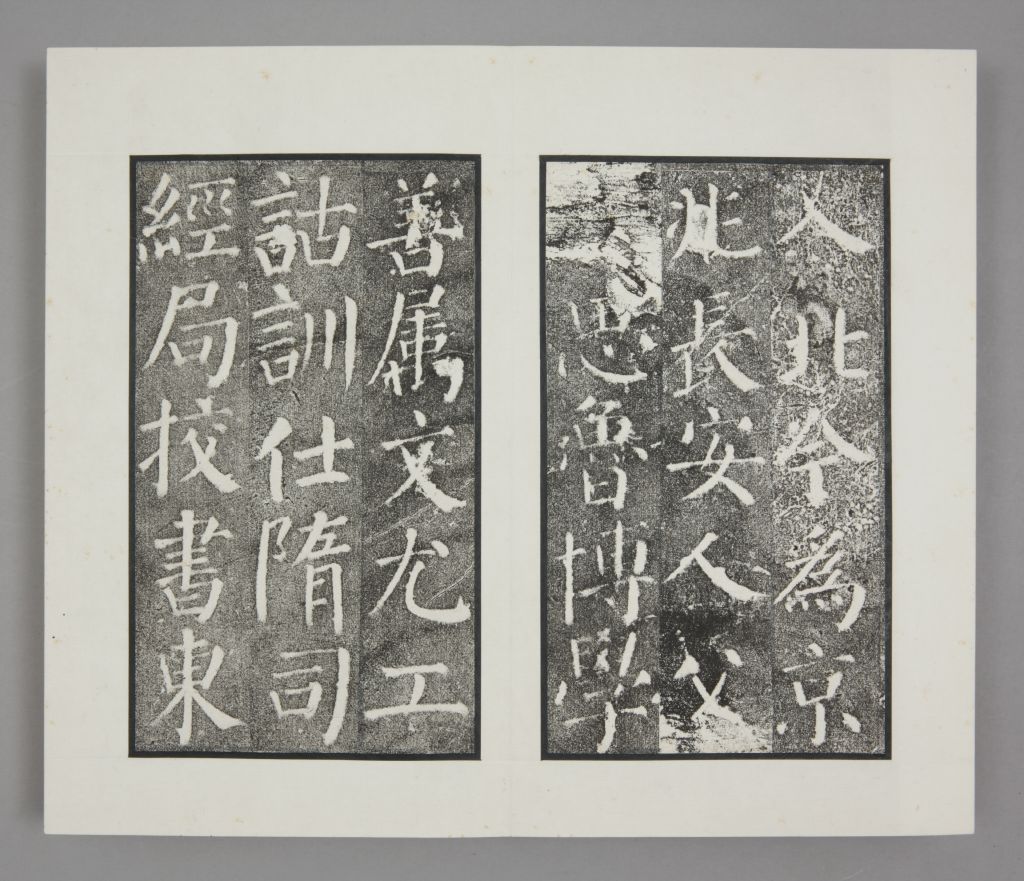 入北今為京
兆長安人父
思魯博學
善属文尤工
詁訓仕隋司
經局挍書東